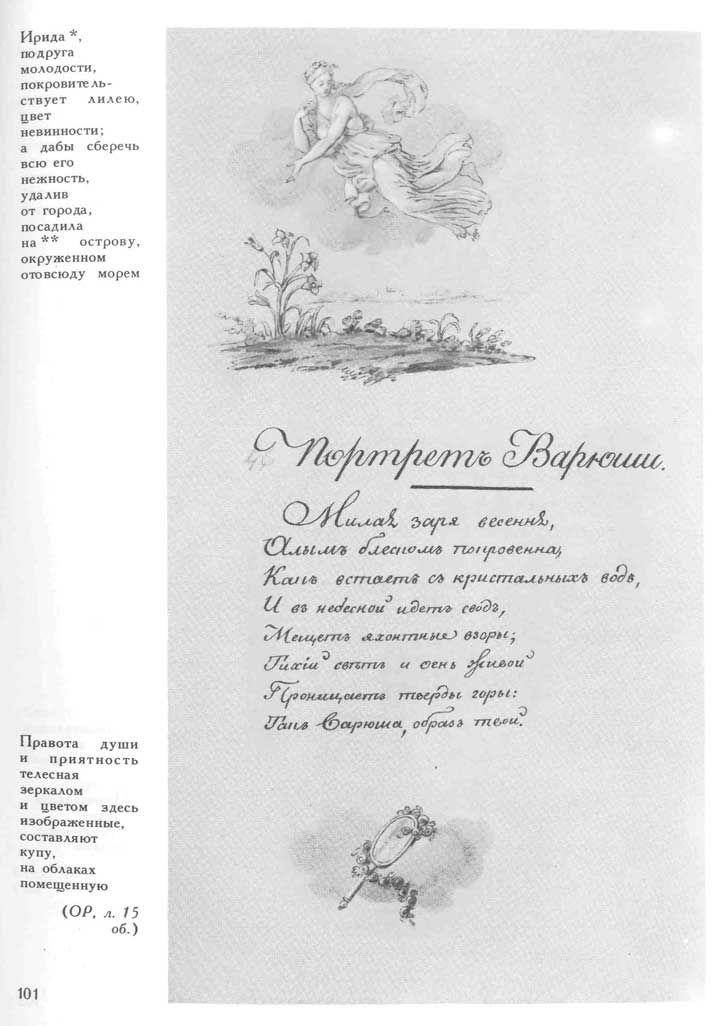 Ирида *,
подруга
молодости,
покровитель-
ствует лилею,
цвет
невинности;
а дабы сберечь
всю его
нежность,
удалив
от города,
посадила
на ** острову,
окруженном
отовсюду морем
46
Портретъ Варюши.
Милая заря весення,
Алымъ блескомъ покровенна,
Какъ встаетъ съ кристальныхъ водъ,
И въ небесной идетъ сводъ,
Мещетъ яхонтные взоры;
Тихій свѣтъ и огнь живой
Проницаетъ тверды горы:
Такъ Варюша, образъ твой.
Правота души
и приятность
телесная
зеркалом
и цветом здесь
изображенные,
составляют
купу,
на облаках
помещенную
(ОР, л. 15
об.)
101